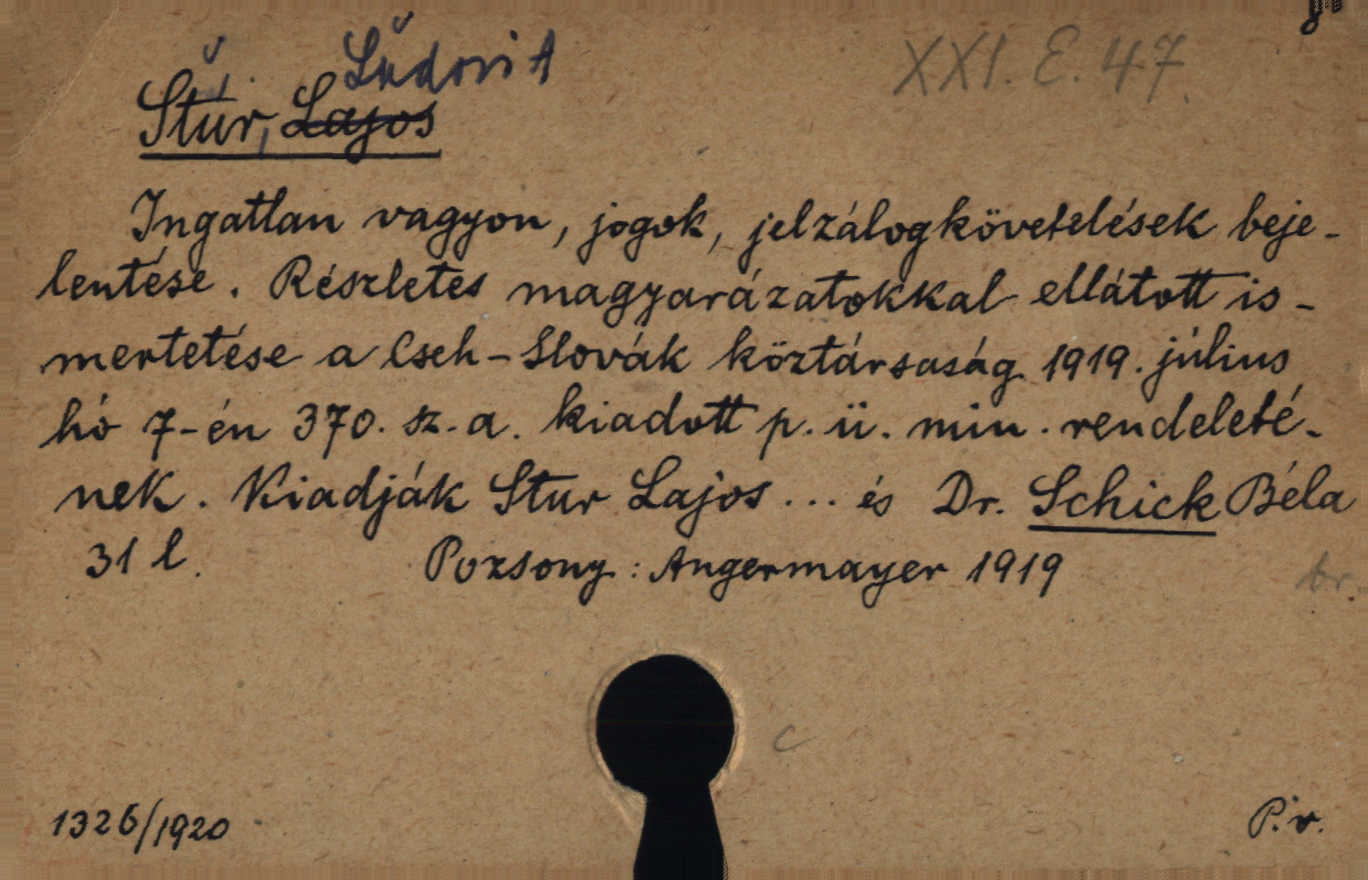 XXI. E. 47.
Ľudovit
Štúr, Lajos
Ingatlan vagyon, jogok, jelzálogkövetelések beje-
lentése. Részletes magyarázatokkal ellátott is-
mertetése a Cseh-Slovák köztársaság 1919. július
hó 7-én 370. sz. a. kiadott p. ü. min. rendeleté-
nek. Kiadják Stur Lajos ... és Dr. Schick Béla
31 l. Pozsony: Angermayer 1919
br.
c
1326/1920 P. v.